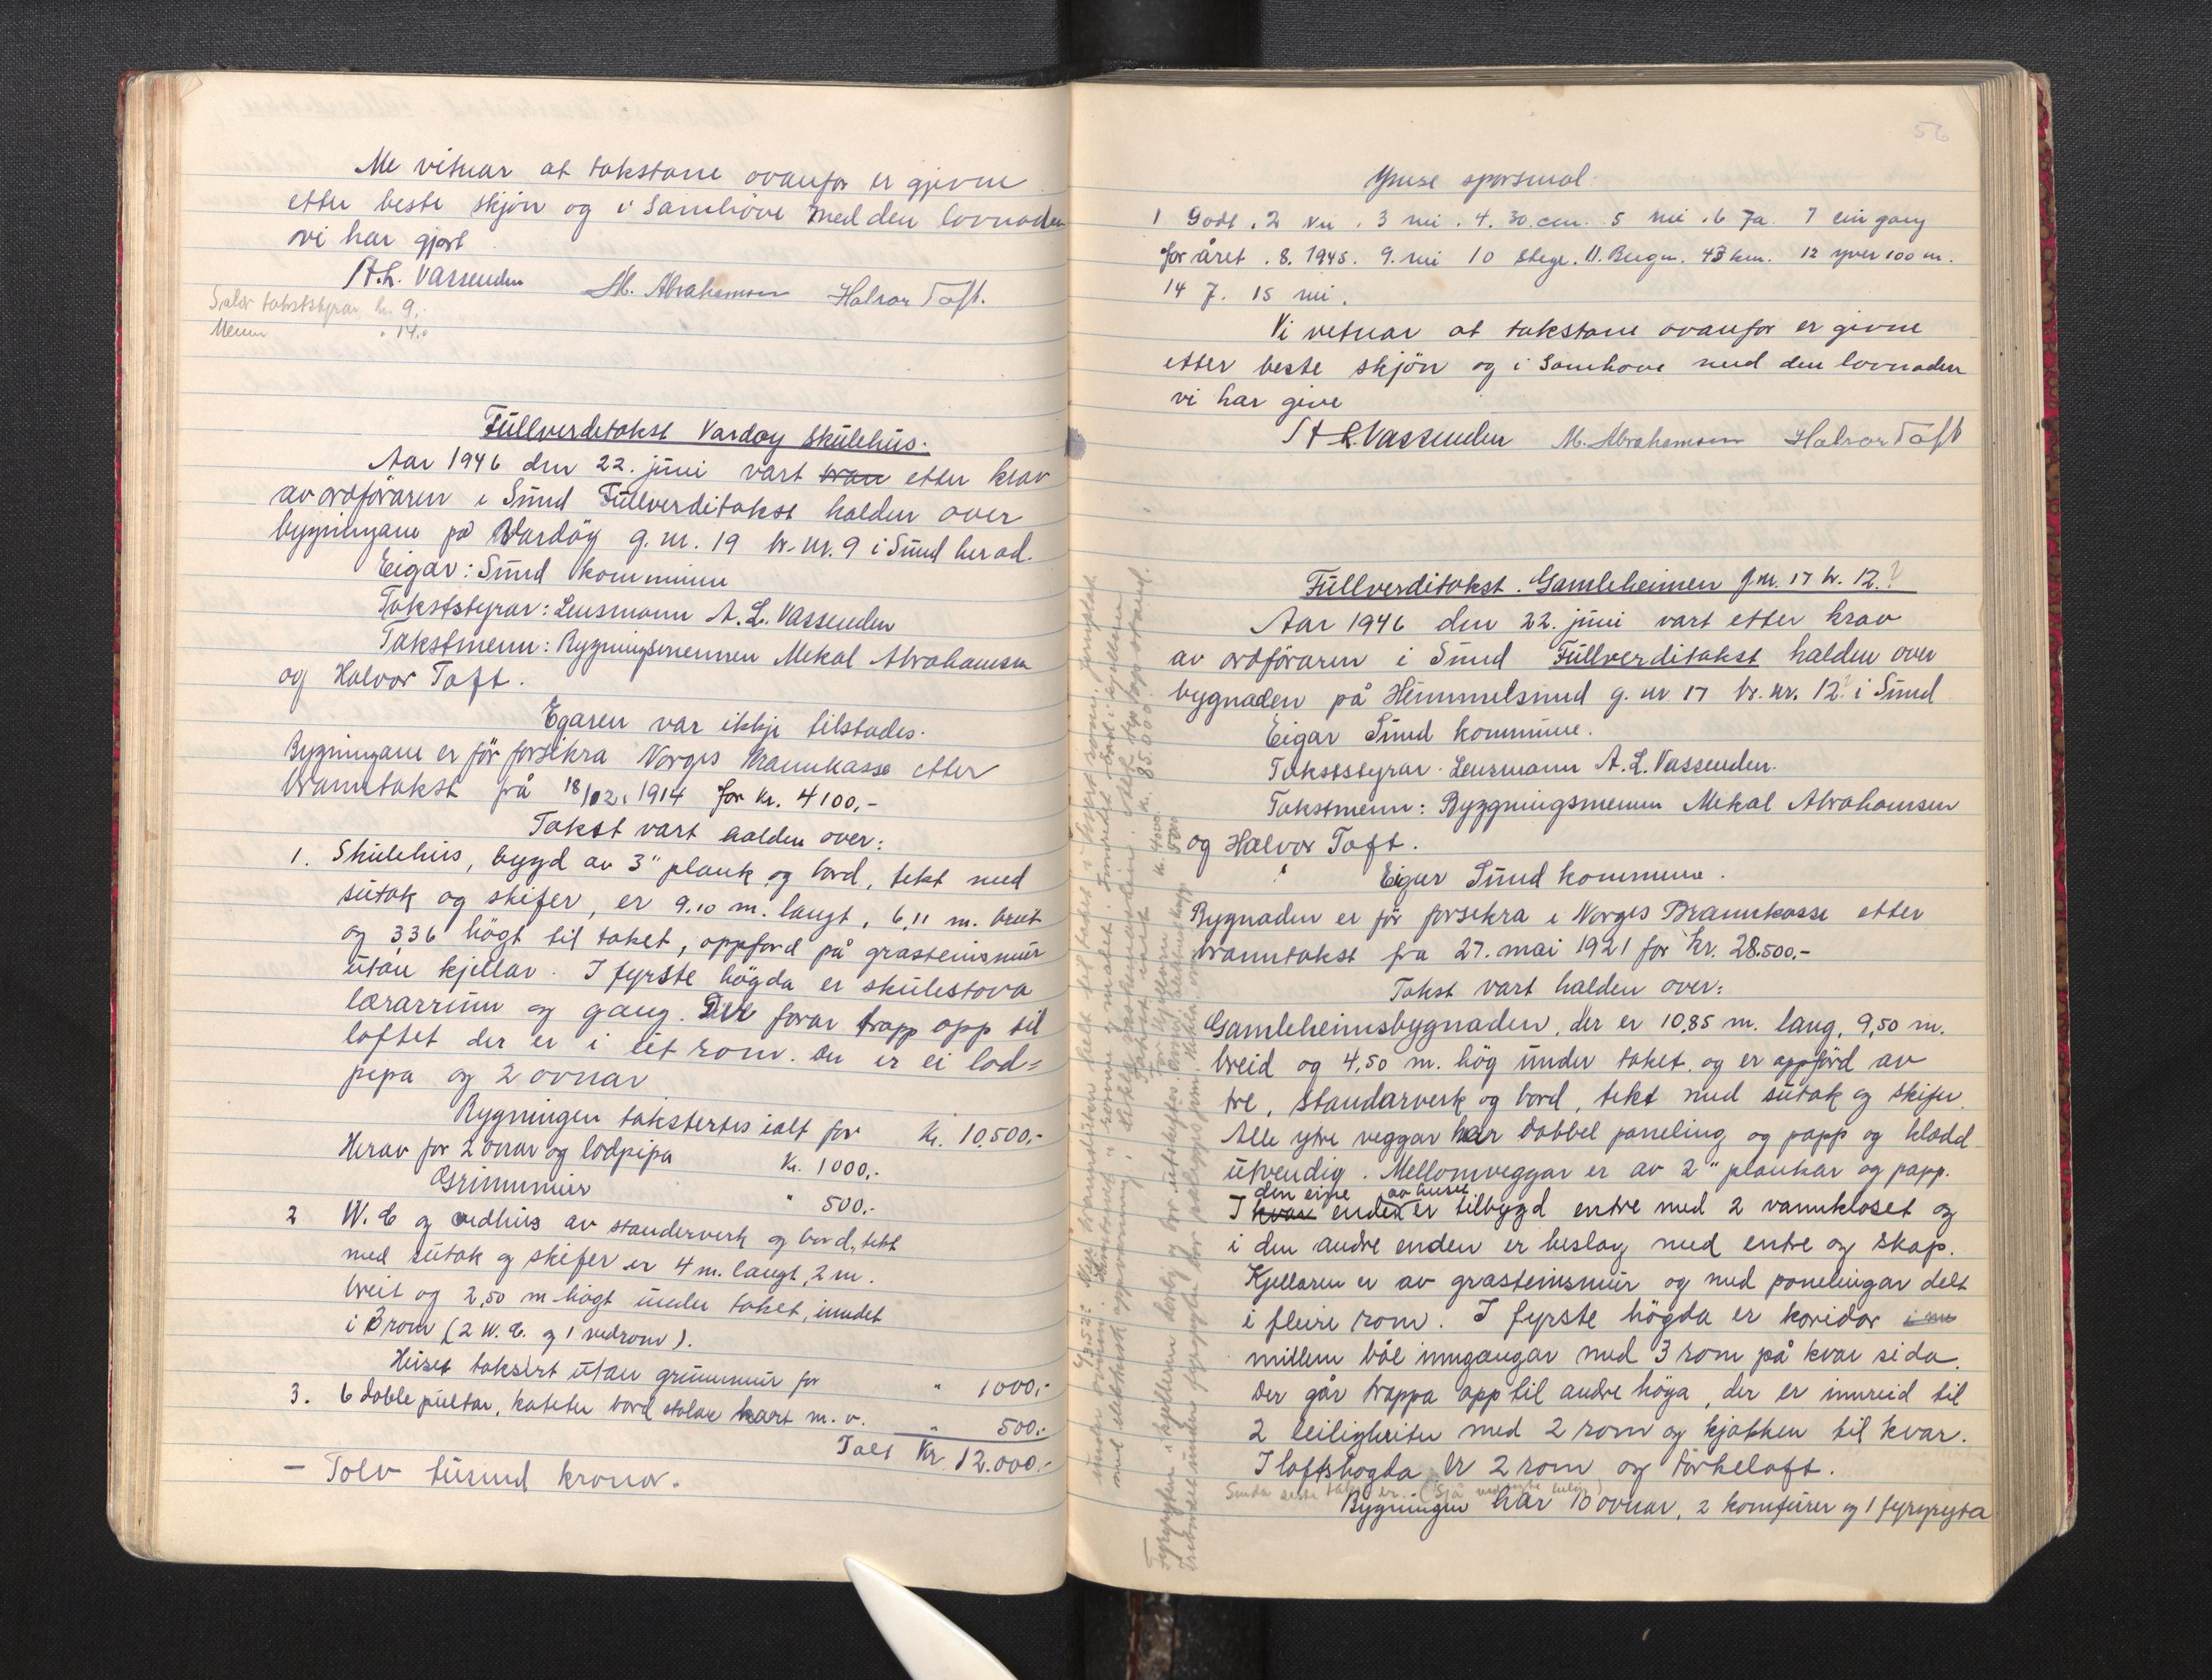 Me vitnar at takstane ovanfor er gjevne
etter beste skjön og i Samhöve med den lovnaden
vi har gjort
A.L. Vassenden M. Abrahamsen Halvor Toft.
takststyrar kr. 9,-
Menn " 14,-
Fullverditakst Vardøy Skulehus.
Aar 1946 den 22. juni vart etter krav
av ordföraren i Sund Fullverditakst halden over
bygningane på Vardöy g. nr. 19 br. nr. 9 i Sund herad.
Eigar: Sund kommune
Takststyrar: Lensmann A. L. Vassenden
Takstmenn: Bygningsmennen Mekal Abrahamsen
og Halvor Toft.
Egaren var ikkje tilstades.
Bygningane er för forsikra Norges Brannkasse etter
branntakst frå 18/12. 1914 for kr. 4100,-
Takst vart halden over:
1. Skulehus, bygd av 3" plank og bord, tekt med
sutak og skifer, er 9.10 m. langt, 6,11 m. breit
og 3,36 högt til taket, oppförd på grasteinsmur
utan kjellar. I fyrste högda er skulestova
lærarrum og gang. Der förar trapp opp til
loftet der er i eit rom. Der er ei lod=
pipa og 2 ovnar
Bygningen takstertes ialt for Kr. 10.500,-
Herav for 2 ovnar og lodpipa Kr. 1000,-
Grunnmur " 500,-
2 W. C og vedhus av standerverk og bord, tekt
med sutak og skifer er 4 m. langt, 2 m.
breit og 2,50 m högt under taket, inndet
i 3 rom (2 W. C. og 1 vedrom).
Huset taksert utan grunnmur for " 1000,-
3. 6 doble pultar, kateter bord stolar kart m. v. " 500,-
Ialt Kr. 12.000.-
— Tolv tusund kronor.
56
Ymse sporsmal
1 Godt. 2 nei. 3 nei. 4. 30. cm. 5 nei. 6 Ja. 7 ein gang
for året. 8. 1945. 9. nei 10 Stege. 11. Bergn. 43 km. 12 yver 100 m.
14 7. 15 nei.
Vi vetnar at takstane ovanfor er givne
etter beste skjön og i Samhove med den lovnaden
vi har give
A L Vassenden M. Abrahamsen Halvor Toft
Fullverditakst. Gamleheimen g.nr. 17 br. 12.?
Aar 1946 den 22. juni vart etter krav
av ordföraren i Sund Fullverditakst halden over
bygnaden på Hummelsund g. nr 17 br. nr. 12? i Sund
Eigar Sund kommune.
Takststyrar. Lensmann A. L. Vassenden.
Takstmenn: Byggningsmennen Mekal Abrahamsen
og Halvor Toft.
Eigar Sund kommune.
Bygnaden er för forsekra i Norges Brannkasse etter
branntakst fra 27. mai 1921 for kr. 28.500,-
Takst vart halden over:
Gamleheimsbygnaden, der er 10,85 m. lang, 9,50 m.
breid og 4,50 m. hög under taket, og er oppförd av
tre, standarverk og bord, tekt med sutak og skifer.
Alle ytre veggar har dobbel paneling og papp og klædd
utvendig. Mellomveggar er av 2" plankar og papp.
den eine av huset
I hvar enden er tilbygd entre med 2 vannkloset og
i den andre enden er beslag med entre og skap.
Kjellaren er av grasteinsmur og med panelingar delt
i fleire rom. I fyrste högda er koridor
millem båe inngangar med 3 rom på kvar sida.
Der går trappa opp til andre höga, der er innreid til
2 leiligheiter med 2 rom og kjökken til kvar.
I loftshogda er 2 rom og törkeloft.
Bygningen har 10 ovnar, 2 komfurer og 1 fyrgryta